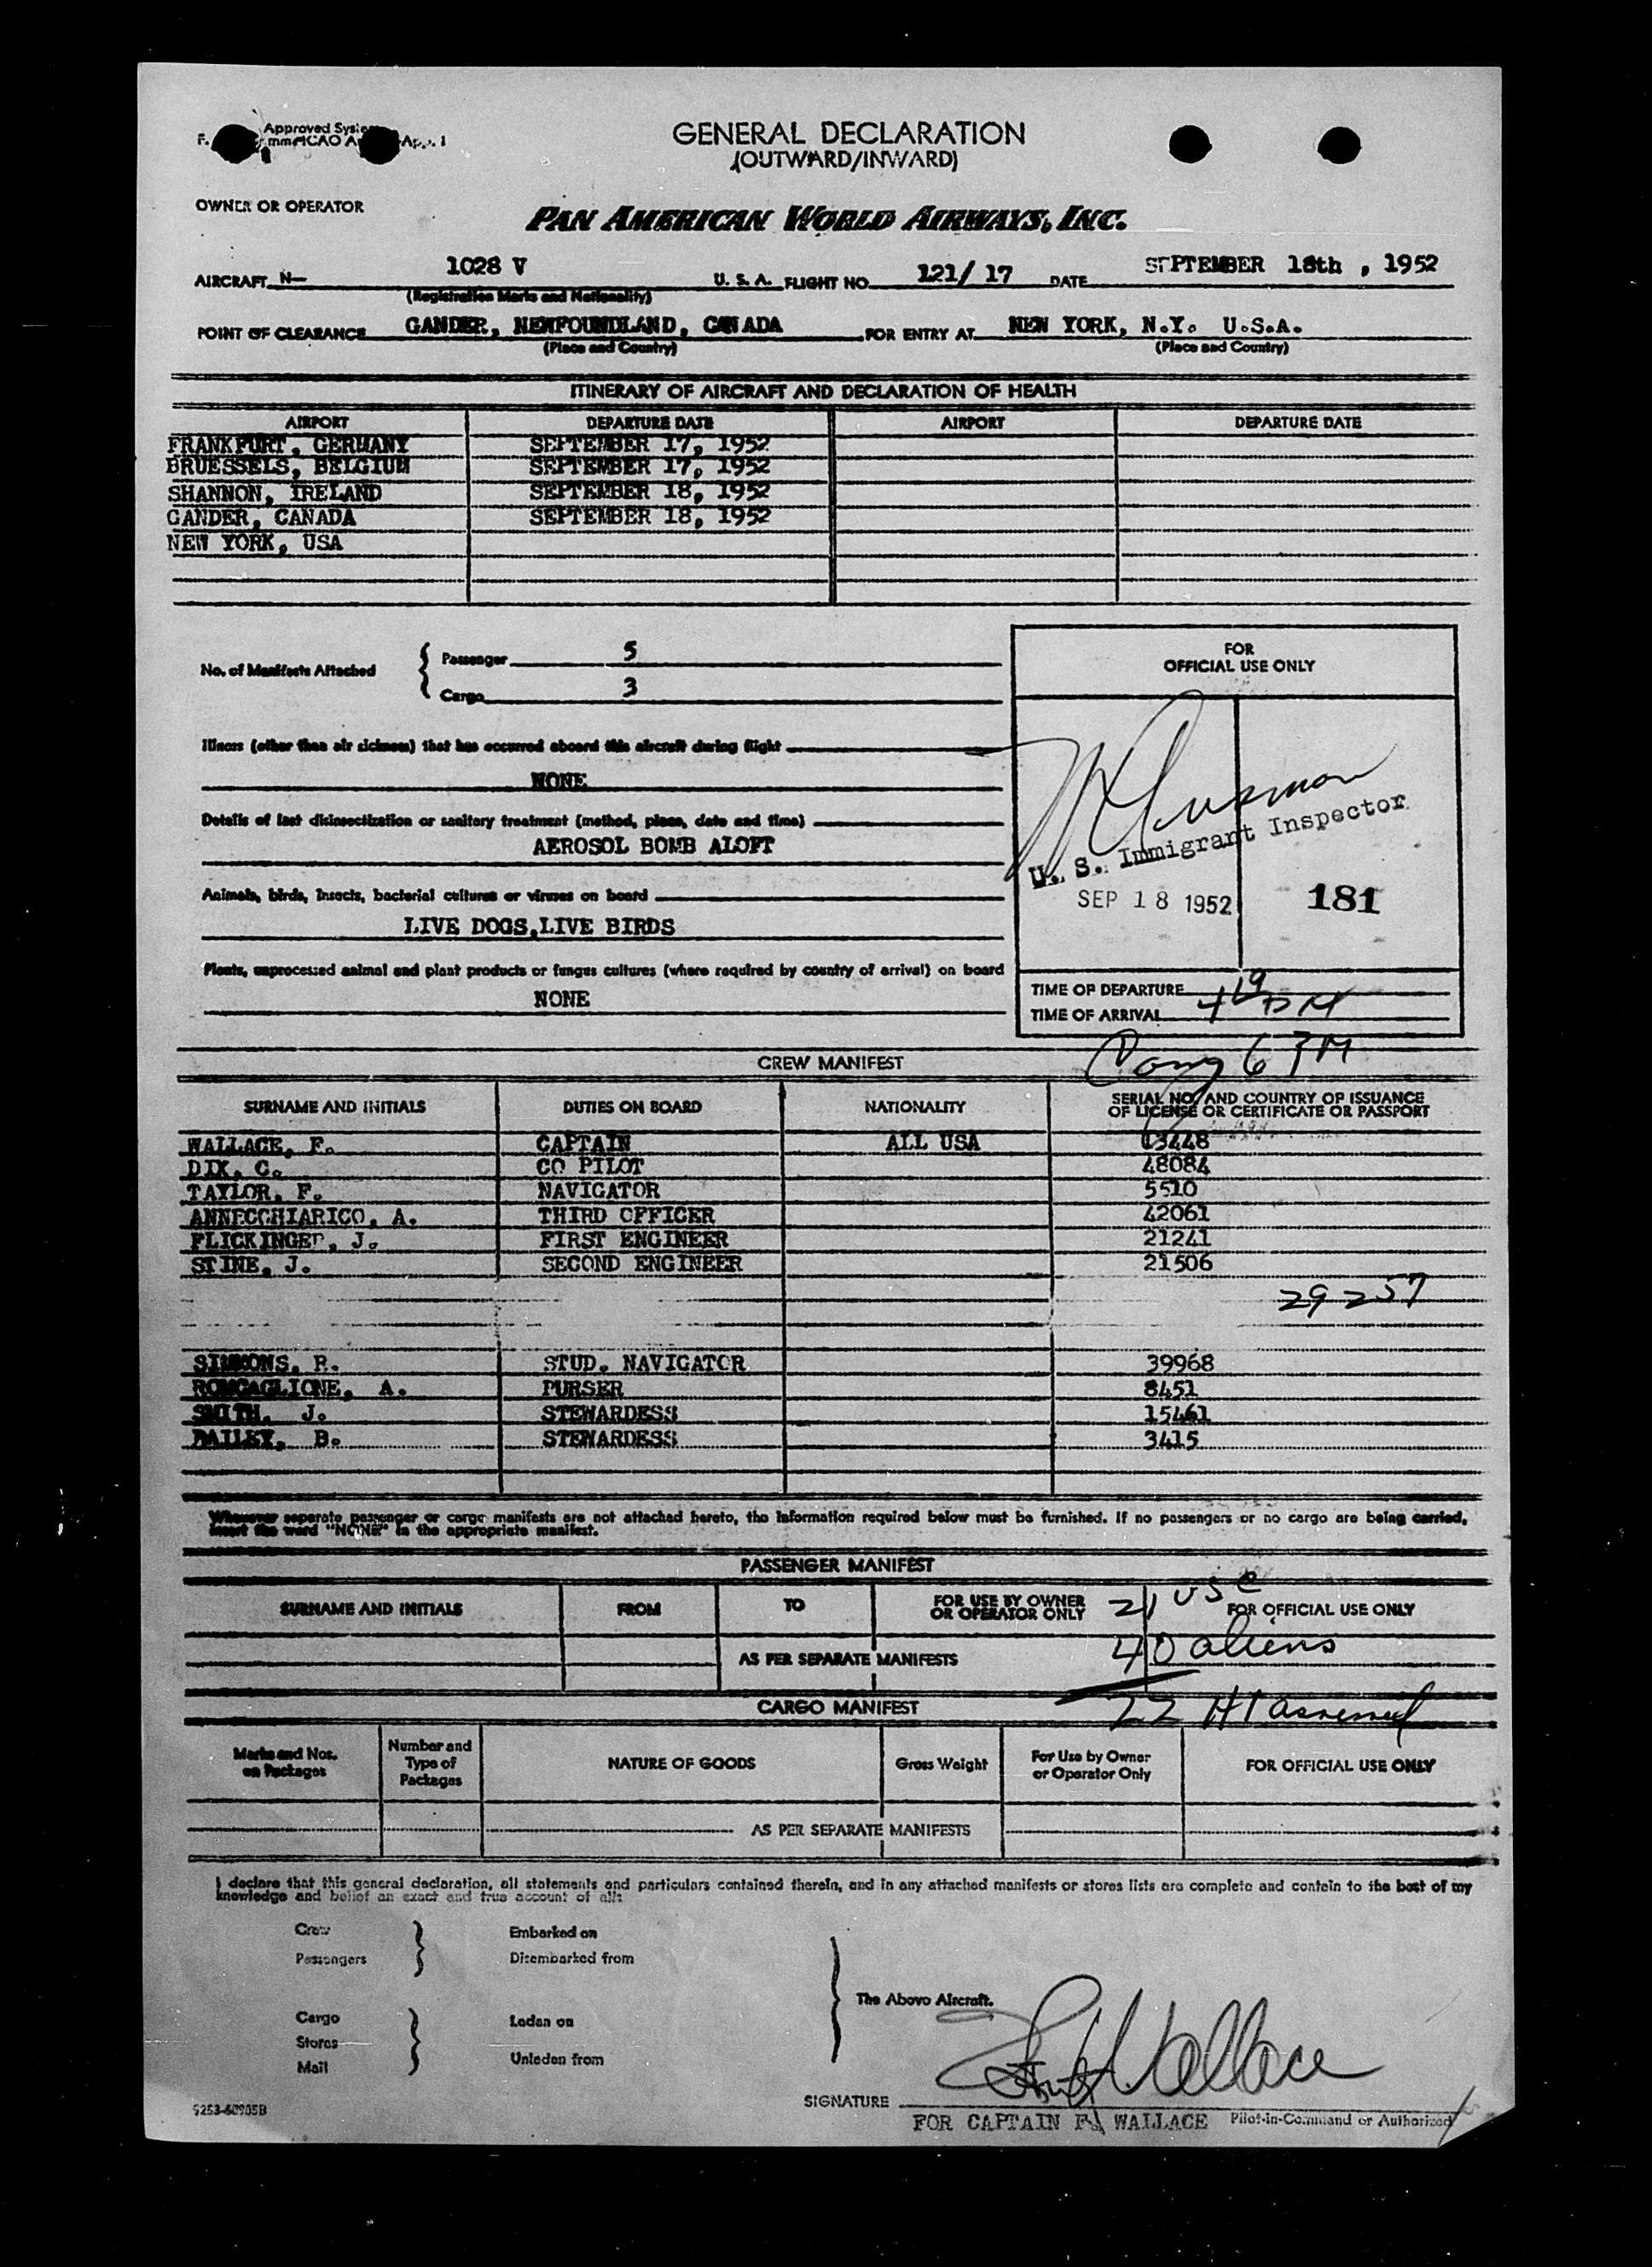 Approved
GENERAL DECLARATION
(OUTWARD/INWARD)
OWNER OR OPERATOR
PAN AMERICAN WORLD AIRWAYS, INC.
AIRCRAFT N— 1028 V U. S. A. FLIGHT NO. 121/ 17 DATE SEPTEMBER 18th , 1952
(Registration Marks and Nationality)
POINT OF CLEARANCE GANDER, NEWFOUNDLAND, CANADA FOR ENTRY AT NEW YORK, N.Y. U.S.A.
(Place and Country) (Place and Country)
ITINERARY OF AIRCRAFT AND DECLARATION OF HEALTH
AIRPORT DEPARTURE DATE AIRPORT DEPARTURE DATE
FRANKFURT, GERMANY SEPTEMBER 17, 1952
BRUESSELS, BELGIUM SEPTEMBER 17, 1952
SHANNON, IRELAND SEPTEMBER 18, 1952
GANDER, CANADA SEPTEMBER 18, 1952
NEW YORK, USA
No. of Manifests Attached { Passenger 5
Cargo 3
Illness (other than air sickness) that has occurred aboard this aircraft during flight
NONE
Details of last disinsectization or sanitary treatment (method, place, date and time)
AEROSOL BOMB ALOFT
Animals, birds, insects, bacterial cultures or viruses on board
LIVE DOGS,LIVE BIRDS
Plants, unprocessed animal and plant products or fungus cultures (where required by country of arrival) on board
NONE
FOR
OFFICIAL USE ONLY
U. S. Immigrant Inspector
SEP 18 1952 181
TIME OF DEPARTURE
TIME OF ARRIVAL 4 19 PM
6 PM
CREW MANIFEST
SURNAME AND INITIALS DUTIES ON BOARD NATIONALITY SERIAL NO. AND COUNTRY OF ISSUANCE
OF LICENSE OR CERTIFICATE OR PASSPORT
WALLACE, F. CAPTAIN ALL USA 13448
DIX, C. CO PILOT 48084
TAYLOR, F. NAVIGATOR 5510
ANNECCHIARICO, A. THIRD OFFICER 42061
FLICKINGER, J. FIRST ENGINEER 21241
STINE, J. SECOND ENGINEER 21506
29257
SIMMONS, R. STUD. NAVIGATOR 39968
RONCAGLIONE, A. PURSER 8451
SMITH, J. STEWARDESS 15461
BAILEY, B. STEWARDESS 3415
Whenever separate passenger or cargo manifests are not attached hereto, the information required below must be furnished. If no passengers or no cargo are being carried,
insert the word "NONE" in the appropriate manifest.
PASSENGER MANIFEST
SURNAME AND INITIALS FROM TO FOR USE BY OWNER
OR OPERATOR ONLY FOR OFFICIAL USE ONLY
21 USC
AS PER SEPARATE MANIFESTS 40 aliens
CARGO MANIFEST
22 HT assessed
Marks and Nos.
on Packages Number and
Type of
Packages NATURE OF GOODS Gross Weight For Use by Owner
or Operator Only FOR OFFICIAL USE ONLY
AS PER SEPARATE MANIFESTS
I declare that this general declaration, all statements and particulars contained therein, and in any attached manifests or stores lists are complete and contain to the best of my
knowledge and belief an exact and true account of all:
Crew Embarked on
Passengers Disembarked from
The Above Aircraft.
Cargo Laden on
Stores
Mail Unladen from
SIGNATURE Wallace
FOR CAPTAIN F. WALLACE Pilot-in-Command or Authorized
5253-60905B